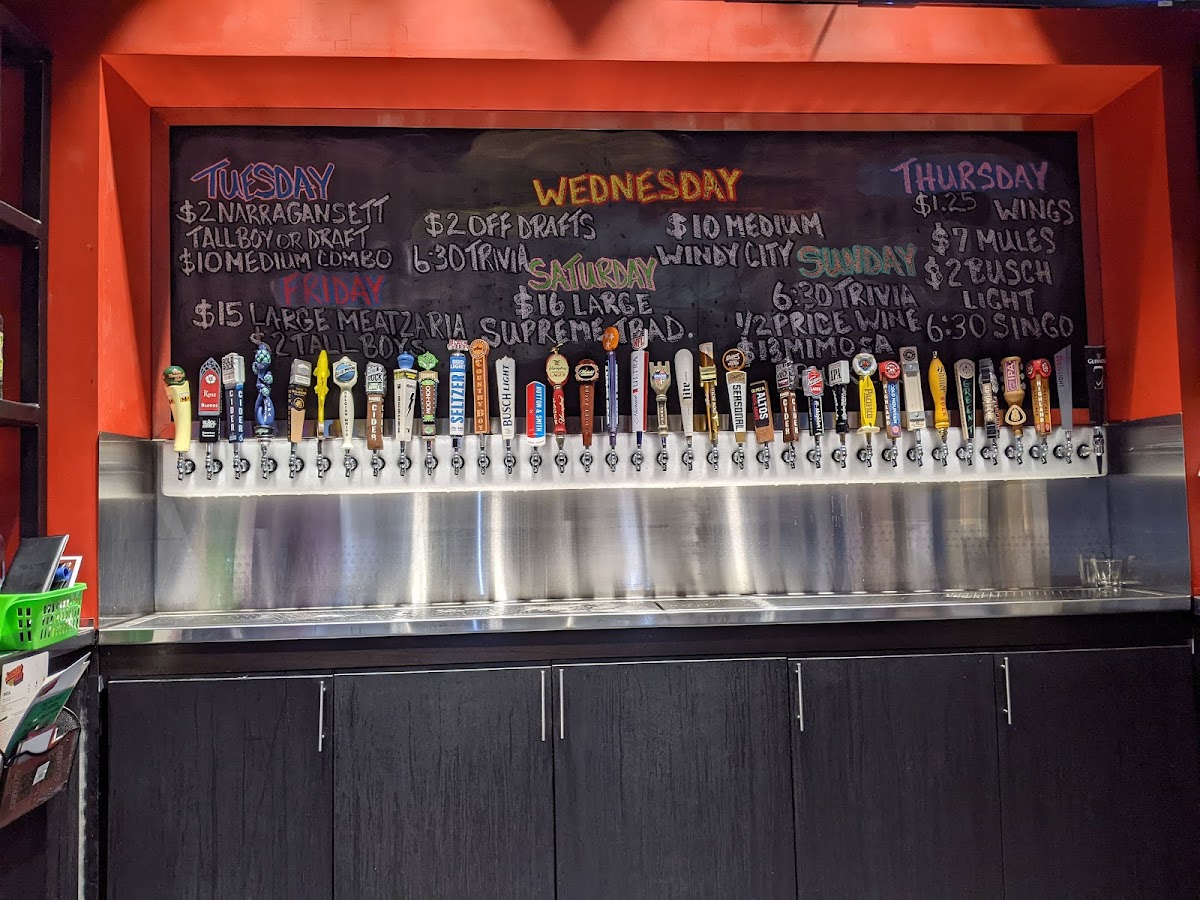 TUESDAY
$2 NARRAGANSETT
TALLBOY OR DRAFT
$10 MEDIUM COMBO
WEDNESDAY
$2 OFF DRAFTS
6:30 TRIVIA
$10 MEDIUM
WINDY CITY
THURSDAY
$1.25 WINGS
$7 MULES
$2 BUSCH
LIGHT
6:30 SINGO
FRIDAY
$15 LARGE MEATZARIA
$2 TALL BOYS
SATURDAY
$16 LARGE
SUPREME TRAD.
SUNDAY
6:30 TRIVIA
1/2 PRICE WINE
$13 MIMOSA
Rosé
CIDER
CIDER
CIDER
BUD
LIGHT
SELTZER
COUNTRY BOY
BUSCH LIGHT
ULTRA
SEASONAL
ALTOS
CIDER
IPA
GUINNESS